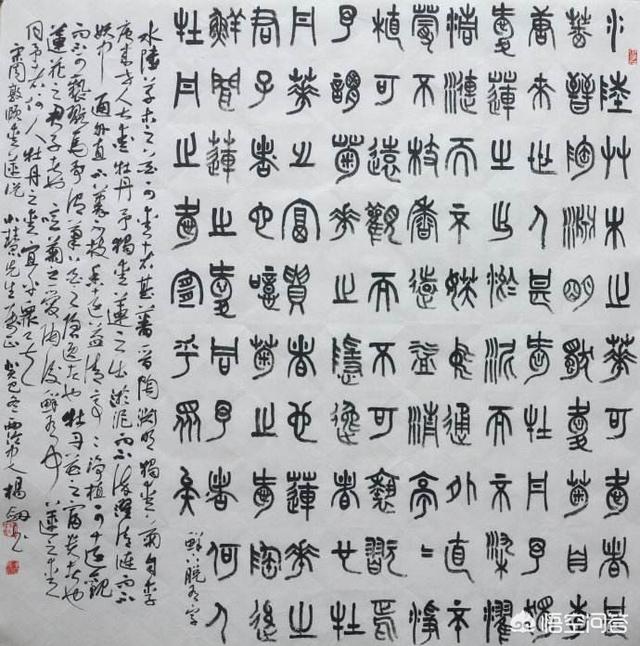 水陸艸木之華可愛者甚
蕃晉陶淵明獨愛菊自李
唐來世人甚愛牡丹予獨
愛蓮之出淤泥而不染濯
清漣而不妖中通外直不
蔓不枝香遠益清亭〻淨
植可遠觀而不可褻翫焉
予謂菊華之隱逸者也牡
丹華之富貴者也蓮華之
君子者也噫菊之愛陶後
鮮聞蓮之愛同予者何人
牡丹之愛宜乎眾矣
鮮下脫有字
水陸草木之花可愛者甚蕃晉陶淵明獨愛菊自李
唐來世人甚愛牡丹予獨愛蓮之出淤泥而不染濯清漣而不
妖中通外直不蔓不枝香遠益清亭〻淨植可遠觀
而不可褻翫焉予謂菊花之隱逸者也牡丹花之富貴者也
蓮花之君子者也噫菊之愛陶後鮮有聞蓮之愛
同予者何人牡丹之愛宜乎眾矣
宋周敦頤愛蓮說 先生 正 癸巳冬 楊劍
悟空问答